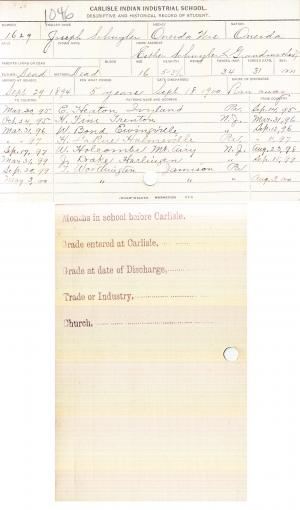 1046
CARLISLE INDIAN INDUSTRIAL SCHOOL.
DESCRIPTIVE AND HISTORICAL RECORD OF STUDENT.
NUMBER ENGLISH NAME AGENCY NATION
1629 Joseph Schuyler Oneida Wis Oneida
HOME ADDRESS
Esther Schuyler Grandmother
Dead Dead 16 5-7½ 34 31
Sept 29 1894 5 years Sept 18, 1900 Ran away
Mar 30 95 E. Heston Pa. Sep 14, 95
Oct 24, 95 H. Fine Trenton N.J. Mar 31, 96
Mar 31, 96 W. Bond Ewingville " Sep 12, 96
" " 97 H. LaRue Pa " " 97
Sep. 17, 97 W. Holcombe Mt. Airy N.J. Aug 23, 98
Mar 30, 99 J. Drake Harlingen " Sep 15, 99
Sep 20, 99 T. Worthington Jamison Pa
May 3, 00 " " " Aug 2, 00
Months in school before Carlisle,
Grade entered at Carlisle,
Grade at date of Discharge,
Trade or Industry,
Church,